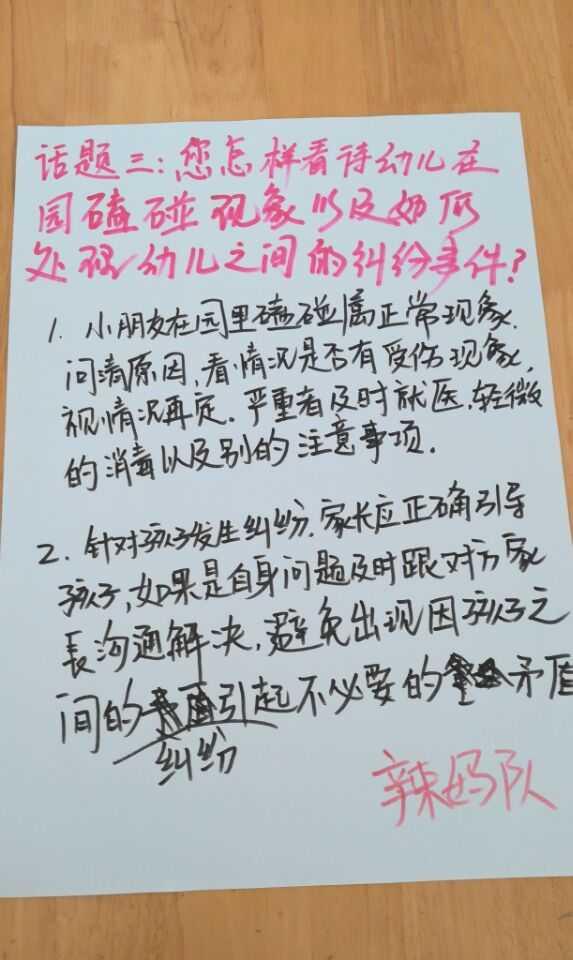 话题三:您怎样看待幼儿在
园磕碰现象以及如何
处理幼儿之间的纠纷事件?
1. 小朋友在园里磕碰属正常现象.
问清原因,看情况是否有受伤现象,
视情况再定.严重者及时就医.轻微
的消毒以及别的注意事项.
2. 针对孩子发生纠纷.家长应正确引导
孩子,如果是自身问题及时跟对方家
长沟通解决,避免出现因孩子之
间的纠纷引起不必要的矛盾
辣妈队